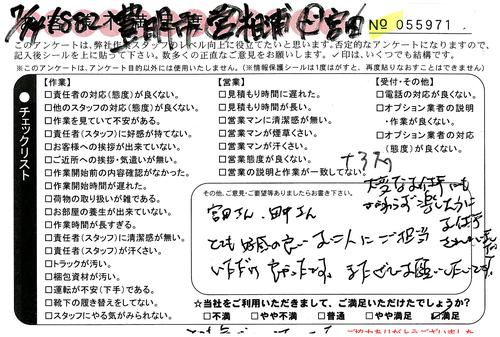 No 055971
このアンケートは、弊社作業スタッフのレベル向上に役立てたいと思います。否定的なアンケートになりますので、
記入後シールを上に貼って下さい。数多くの正直なご意見をお願いします。✓印は、いくつでも結構です。
※このアンケートは、アンケート目的以外には使用いたしません。(※情報保護シールは1度はがすと、再度貼りなおすことはできません)
●チェックリスト
【作業】
□責任者の対応(態度)が良くない。
□他のスタッフの対応(態度)が良くない。
□作業を見ていて不安がある。
□責任者(スタッフ)に好感が持てない。
□お客様への挨拶が出来ていない。
□ご近所への挨拶・気遣いが無い。
□作業開始前の内容確認がなかった。
□作業開始時間が遅れた。
□荷物の取り扱いが雑である。
□お部屋の養生が出来ていない。
□作業時間が長すぎる。
□責任者(スタッフ)に清潔感が無い。
□責任者(スタッフ)が汗くさい。
□トラックが汚い。
□梱包資材が汚い。
□運転が不安(下手)である。
□靴下の履き替えをしてない。
□スタッフにやる気がみられない。
【営業】
□見積もり時間に遅れた。
□見積もり時間が長い。
□営業マンに清潔感が無い。
□営業マンが煙草くさい。
□営業マンが汗くさい。
□営業態度が良くない。
□営業の説明と作業が一致してない。
【受付・その他】
□電話の対応が良くない。
□オプション業者の説明
・作業が良くない。
□オプション業者の対応
(態度)が良くない。
その他、ご意見・ご要望等ありましたらお書き下さい。
宮田さん、田中さん
とても感じの良いお二人にご担当
いただけ良かったです。
☆当社をご利用いただきまして、ご満足いただけたでしょうか?
□不満 □やや不満 □普通 □やや満足 ☑満足
ご協力ありがとうございました